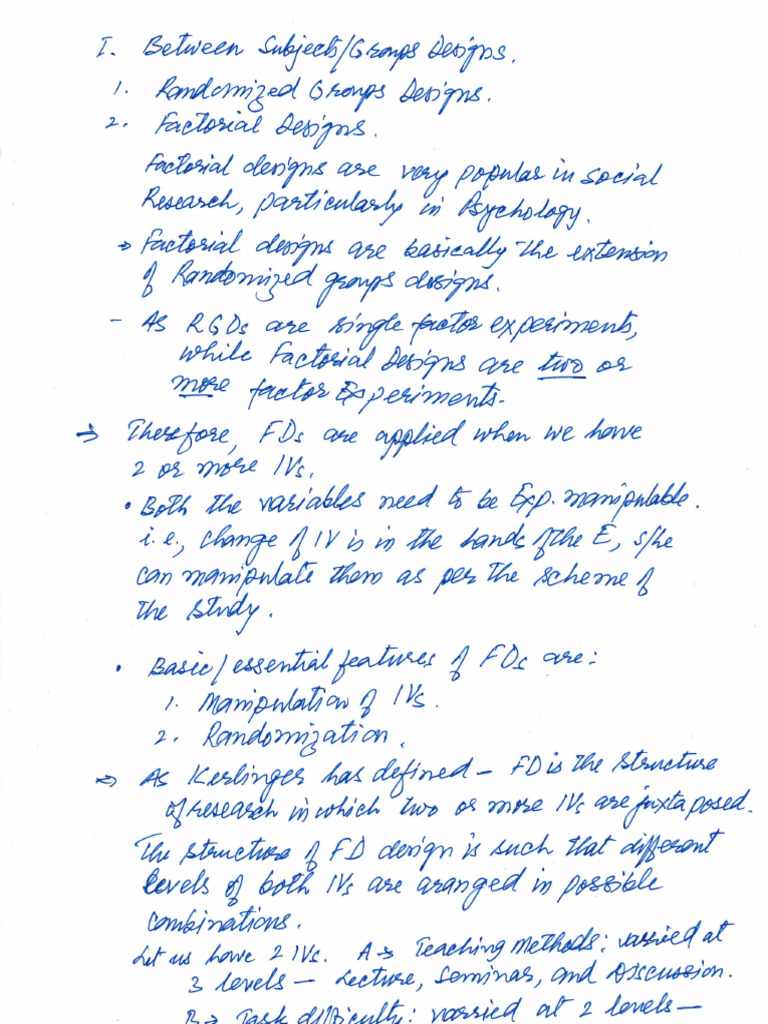 I. Between Subjects/Groups Designs.
1. Randomized Groups Designs.
2. Factorial Designs.
Factorial designs are very popular in Social
Research, particularly in Psychology.
→ Factorial designs are basically the extension
of Randomized groups designs.
- As RGDs are single factor experiments,
while Factorial Designs are two or
more factor Experiments.
→ Therefore, FDs are applied when we have
2 or more IVs.
• Both the variables need to be Exp. manipulable.
i.e., change of IV is in the hands of the E, s/he
can manipulate them as per the scheme of
the study.
• Basic/essential features of FDs are:
1. Manipulation of IVs.
2. Randomization.
⇒ As Kerlinger has defined - FD is the structure
of research in which two or more IVs are juxtaposed.
The structure of FD design is such that different
levels of both IVs are aranged in possible
combinations.
Let us have 2 IVs. A → Teaching Methods: varried at
3 levels - Lecture, Seminar, and Discussion.
B → Task difficulty: varried at 2 levels -